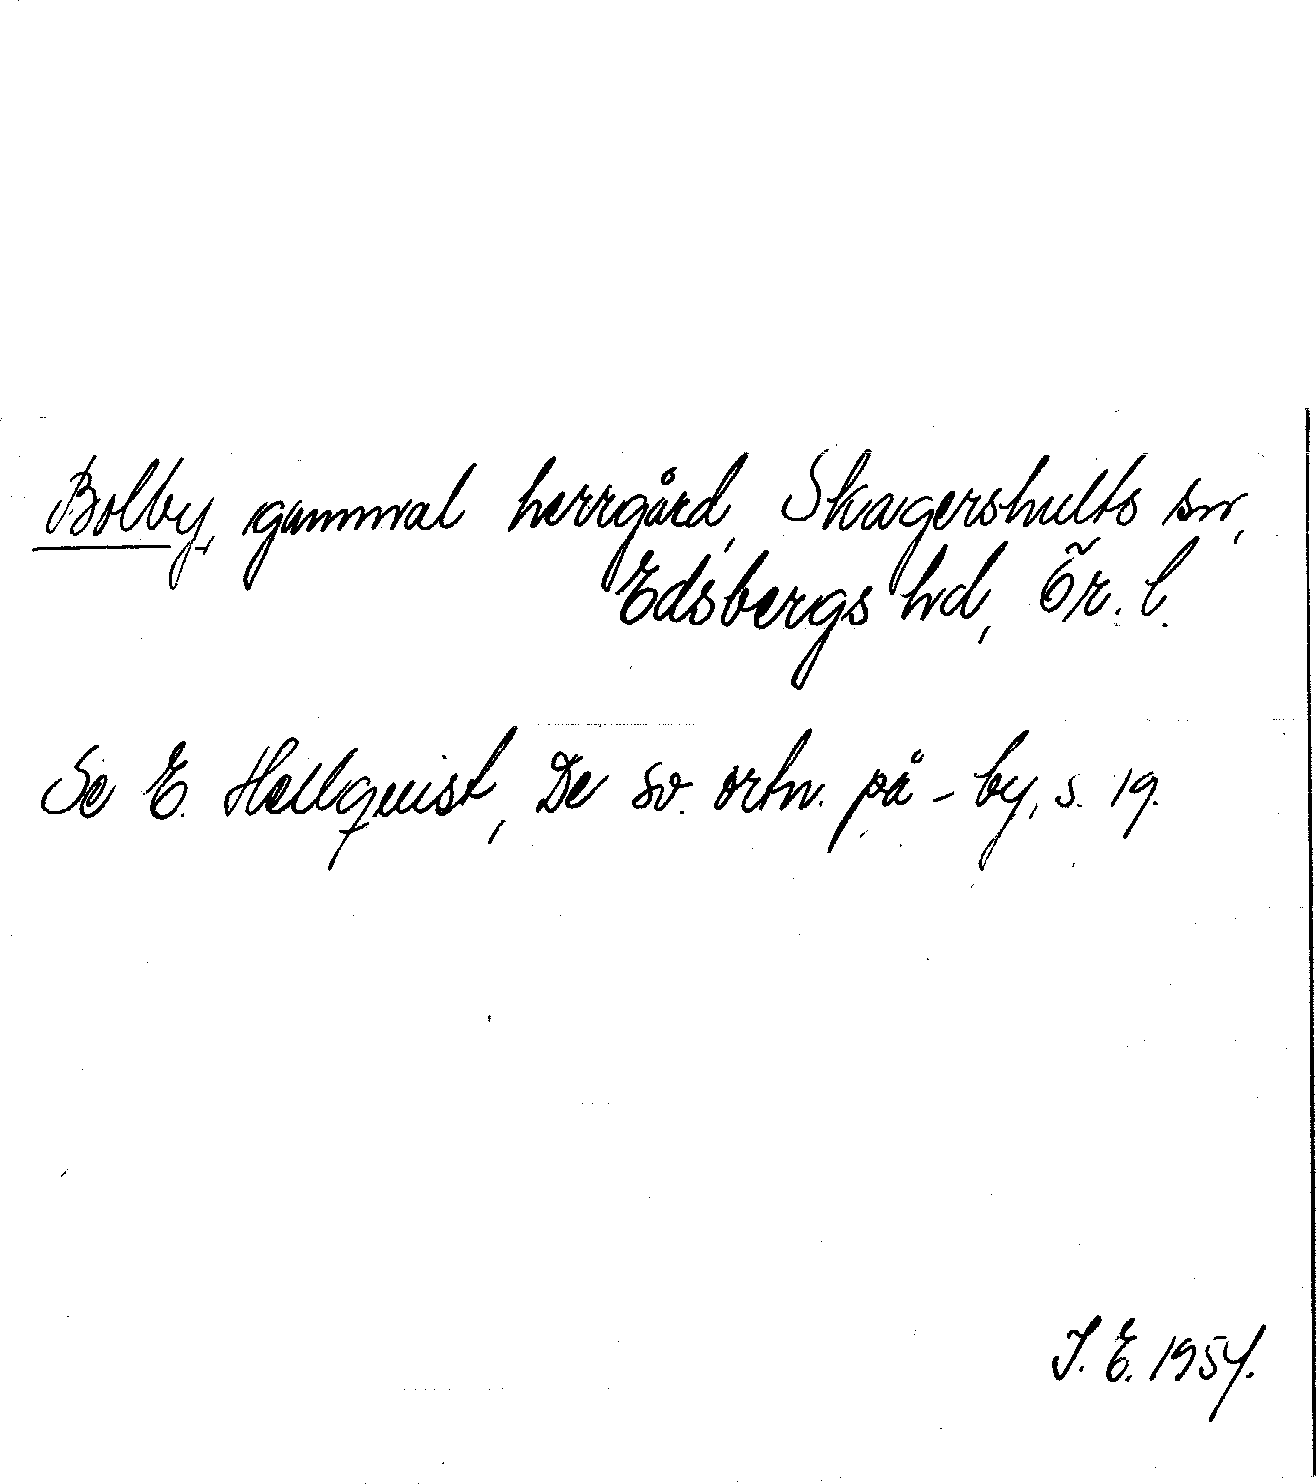 Bolby, gammal herrgård, Skagershults sn,
Edsbergs hd, Ör. l.
Se E. Hellquist, De sv. ortn. på -by, s. 19.
J. E. 1954.